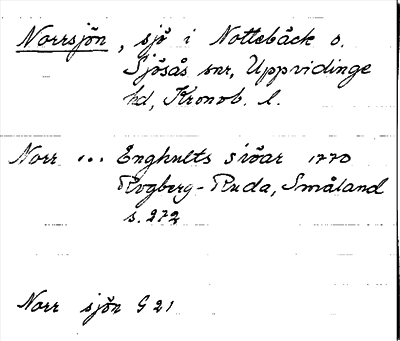 Norrsjön, sjö i Nottebäck o.
Sjösås snr, Uppvidinge
hd, Kronob. l.
Norr ... Enghults siöar 1770
Rogberg-Ruda, Småland
s. 272
Norr sjön G 21